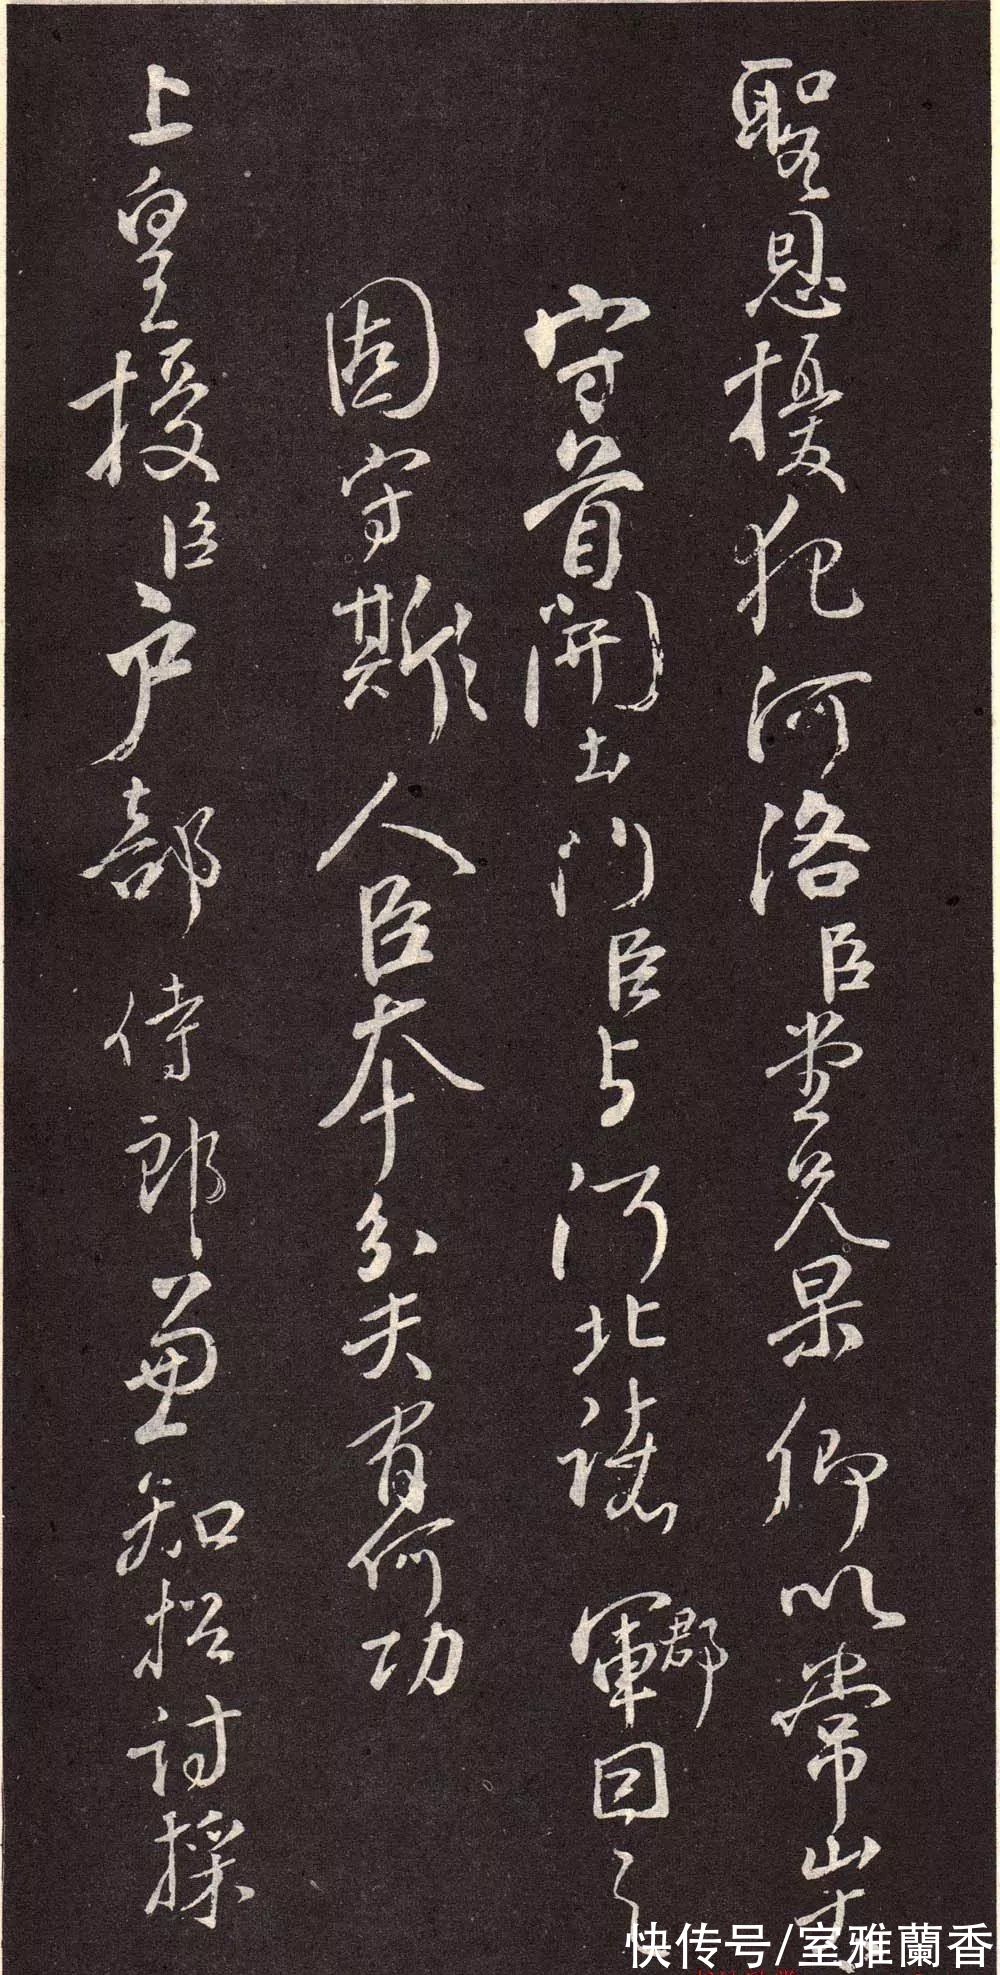 聖恩擾犯河洛臣堂兄杲卿以常山太
守首開土門臣与河北諸軍郡因之
固守斯人臣本分夫有何功
上皇授臣户部侍郎兼知招討採
快传号/室雅蘭香